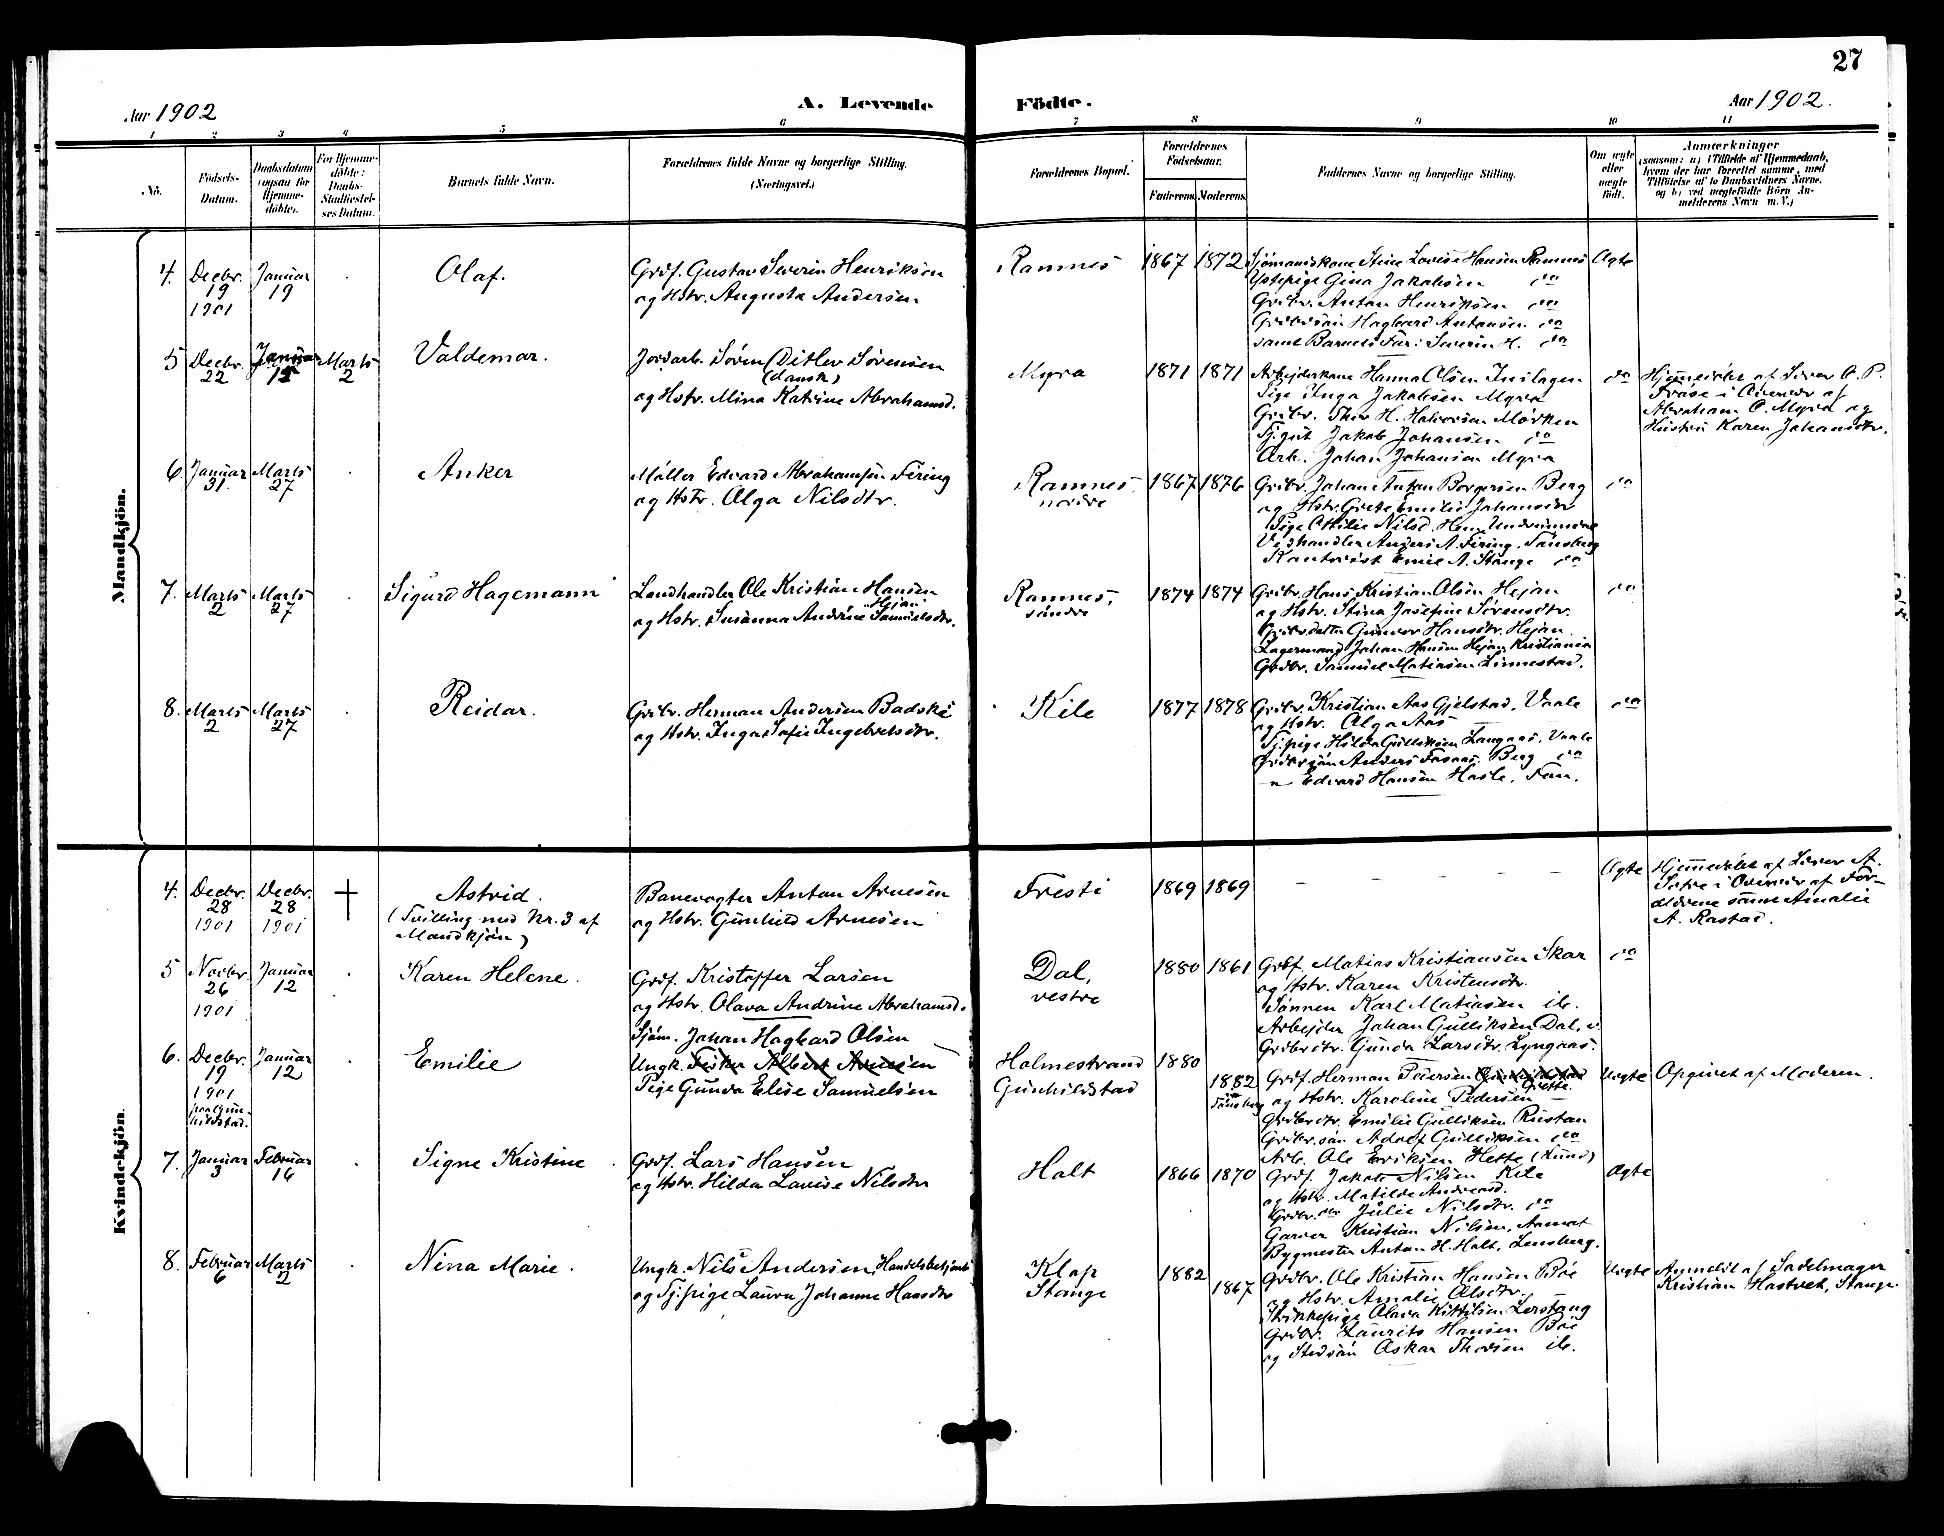 27
Aar 1902
A. Levende
Födte.
Aar 1902.
1 2 3 4 5 6 7 8 9 10 11
No.
Födsels-
Datum.
Daabsdatum
(ogsaa for
Hjemme-
döbte).
For Hjemme-
döbte:
Daabs-
Stadfæstel-
ses Datum.
Barnets fulde Navn.
Forældrenes fulde Navne og borgerlige Stilling.
(Næringsvei.)
Forældrenes Bopæl.
Forældrenes
Födselsaar.
Faderens. Moderens.
Faddernes Navne og borgerlige Stilling.
Om ægte
eller
uægte
født.
Anmærkninger
(saasom: a) i Tilfælde af Hjemmedaab,
hvem der har forrettet samme, med
Tilföielse af to Daabsvidners Navne,
og b) ved uægtefödte Börn An-
melderens Navn m. V.)
Mandkjön.
4. Decbr. 19 1901
Januar 19
Olaf.
Grdf. Gustav Severin Henriksen
og Hstr. Augusta Andersen
Ramnes
1867 1872
Sjømandskone Stine Lovise Hansen Ramnes
Ystepige Gina Jakobsen do
Grdbr. Anton Henriksen do
Grdbrsøn Hagbard Antonsen do
samt Barnets Far: Severin H. do
Ægte
5 Decbr. 22
Januar 12
Marts 2
Valdemar.
Jordarb. Søren Ditlev Sørensen
(dansk)
og Hstr. Mina Katrine Abrahamsd.
Myra
1871 1871
Arbejderkone Hanna Olsen
Pige Inga Jakobsen Myra
Grdbr. Thor H. Halvorsen Mørken
Tj.gut Jakob Johansen do
Arb. Johan Johansen Myra
do
Hjemmedøbt af Lærer O. P.
i Overvær af
Abraham O. Myra og
Hustru Karen Johansdtr.
6 Januar 31.
Marts 27
Anker
Møller Edvard Abrahamsen Firing
og Hstr. Olga Nilsdtr.
Ramnes
nordre
1867 1876
Grdbr. Johan Anton Borgersen Berg
og Hstr. Grete Emilie Johansdtr
Pige Ottilie Nilsd.
Vedhandler Anders A. Firing, Tønsberg
Emil A. Stange do
do
7. Marts 2
Marts 27
Sigurd Hagemann
Landhandler Ole Kristian Hansen
"Hejan"
og Hstr. Susanna Andrine Samuelsdtr.
Ramnes,
søndre
1874 1874
Grdbr. Hans Kristian Olsen Hejan
og Hstr. Stina Josefine Sørensdtr.
Grdbr.datter Gunvor Hansdtr. Hejan.
Lagermand Johan Hansen Hejan Kristiania
Grdbr. Samuel Matiasen Linnestad.
do
8. Marts 2
Marts 27
Reidar.
Grdbr. Herman Andersen Badske
og Hstr. Inga Sofie Ingebretsdtr.
Kile
1877 1878
Grdbr. Kristian Aas Gjelstad, Vaale
og Hstr. Olga Aas
Tj.pige Hilda Gulliksen Langaas, Vaale
Grdbrsøn Anders Berg do
" Edvard Hansen Hasle,
do
Kvindekjön.
4. Decbr. 28 1901
Decbr. 28 1901
†
Astrid.
(Tvilling med Nr. 3 af
Mandkjøn)
Banevogter Anton Arnesen
og Hstr. Gunhild Arnesen
Fresti
1869 1869
– – – – –
Ægte
Hjemmedøbt af Lærer A.
i Overvær af For-
ældrene samt Amalie
A. Rastad.
5 Novbr. 26 1901
Januar 12
Karen Helene.
Grdf. Kristoffer Larsen
og Hstr. Olava Andrine Abrahamsd.
Dal,
vestre
1880 1861
Grdf. Matias Kristiansen Skar
og Hstr. Karen Kristensdtr.
Sønnen Karl Matiasen ib.
Arbejder Johan Gulliksen Dal, v.
Grdbrdtr. Gunda Larsdtr. Lyngaas.
do
6. Decbr. 19 1901
paa Gun-
hildstad.
Januar 12
Emilie
Sjøm. Johan Hagbard Olsen
Ungk. Fisker Albert Arnesen
Pige Gunda Elise Samuelsen
Holmestrand
Gunhildstad
1880
1882
Tønsberg
Grdf. Herman Pedersen
og Hstr. Karoline Pedersen
Grdbrdtr. Emilie Gulliksen Rustan
Grdbr.søn Adolf Gulliksen do
Arb. Ole Eriksen Hette (Lund)
Uægte
Opgivet af Moderen.
7. Januar 3
Februar 16
Signe Kristine
Grdf. Lars Hansen
og Hstr. Hilda Lovise Nilsdtr
Holt
1866 1870
Grdf. Jakob Nilsen Kile
og Hstr. Matilde Andreasd.
Grdbr. dtr Julie Nilsdtr. do
Garver Kristian Nilsen,
Bygmester Anton H. Holt,
Ægte
8. Februar 6
Marts 2
Nina Marie.
Ungk. Nils Andersen, Handelsbetjent
og Tj.pige Laura Johanne Hansdtr
Klop
Stange
1882
1867
Grdbr. Ole Kristian Hansen Bøe
og Hstr. Amalie Olsdtr.
Strikkepige Olava Kittilsen Lerstang
Grdbr. Laurits Hansen Bøe
og Stedsøn Oskar Thorsen ib.
Uægte
Anmeldt af Sadelmager
Kristian Hastvet, Stange.